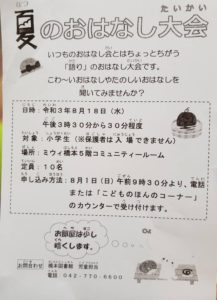 夏のおはなし大会
いつものおはなし会とはちょっとちがう
「語り」のおはなし大会です。
こわ〜いおはなしやたのしいおはなしを
聞いてみませんか？
日時：令和3年8月18日（水）
午後3時30分から30分程度
対象：小学生（※保護者は入場できません）
場所：ミウィ橋本5階コミュニティールーム
定員：10名
申し込み方法：8月1日（日）午前9時30分より、電話
または「こどものほんのコーナー」
のカウンターで受け付けます。
お部屋は少し
暗くします。
お問合わせ 橋本図書館 児童担当
電話 042-770-6600